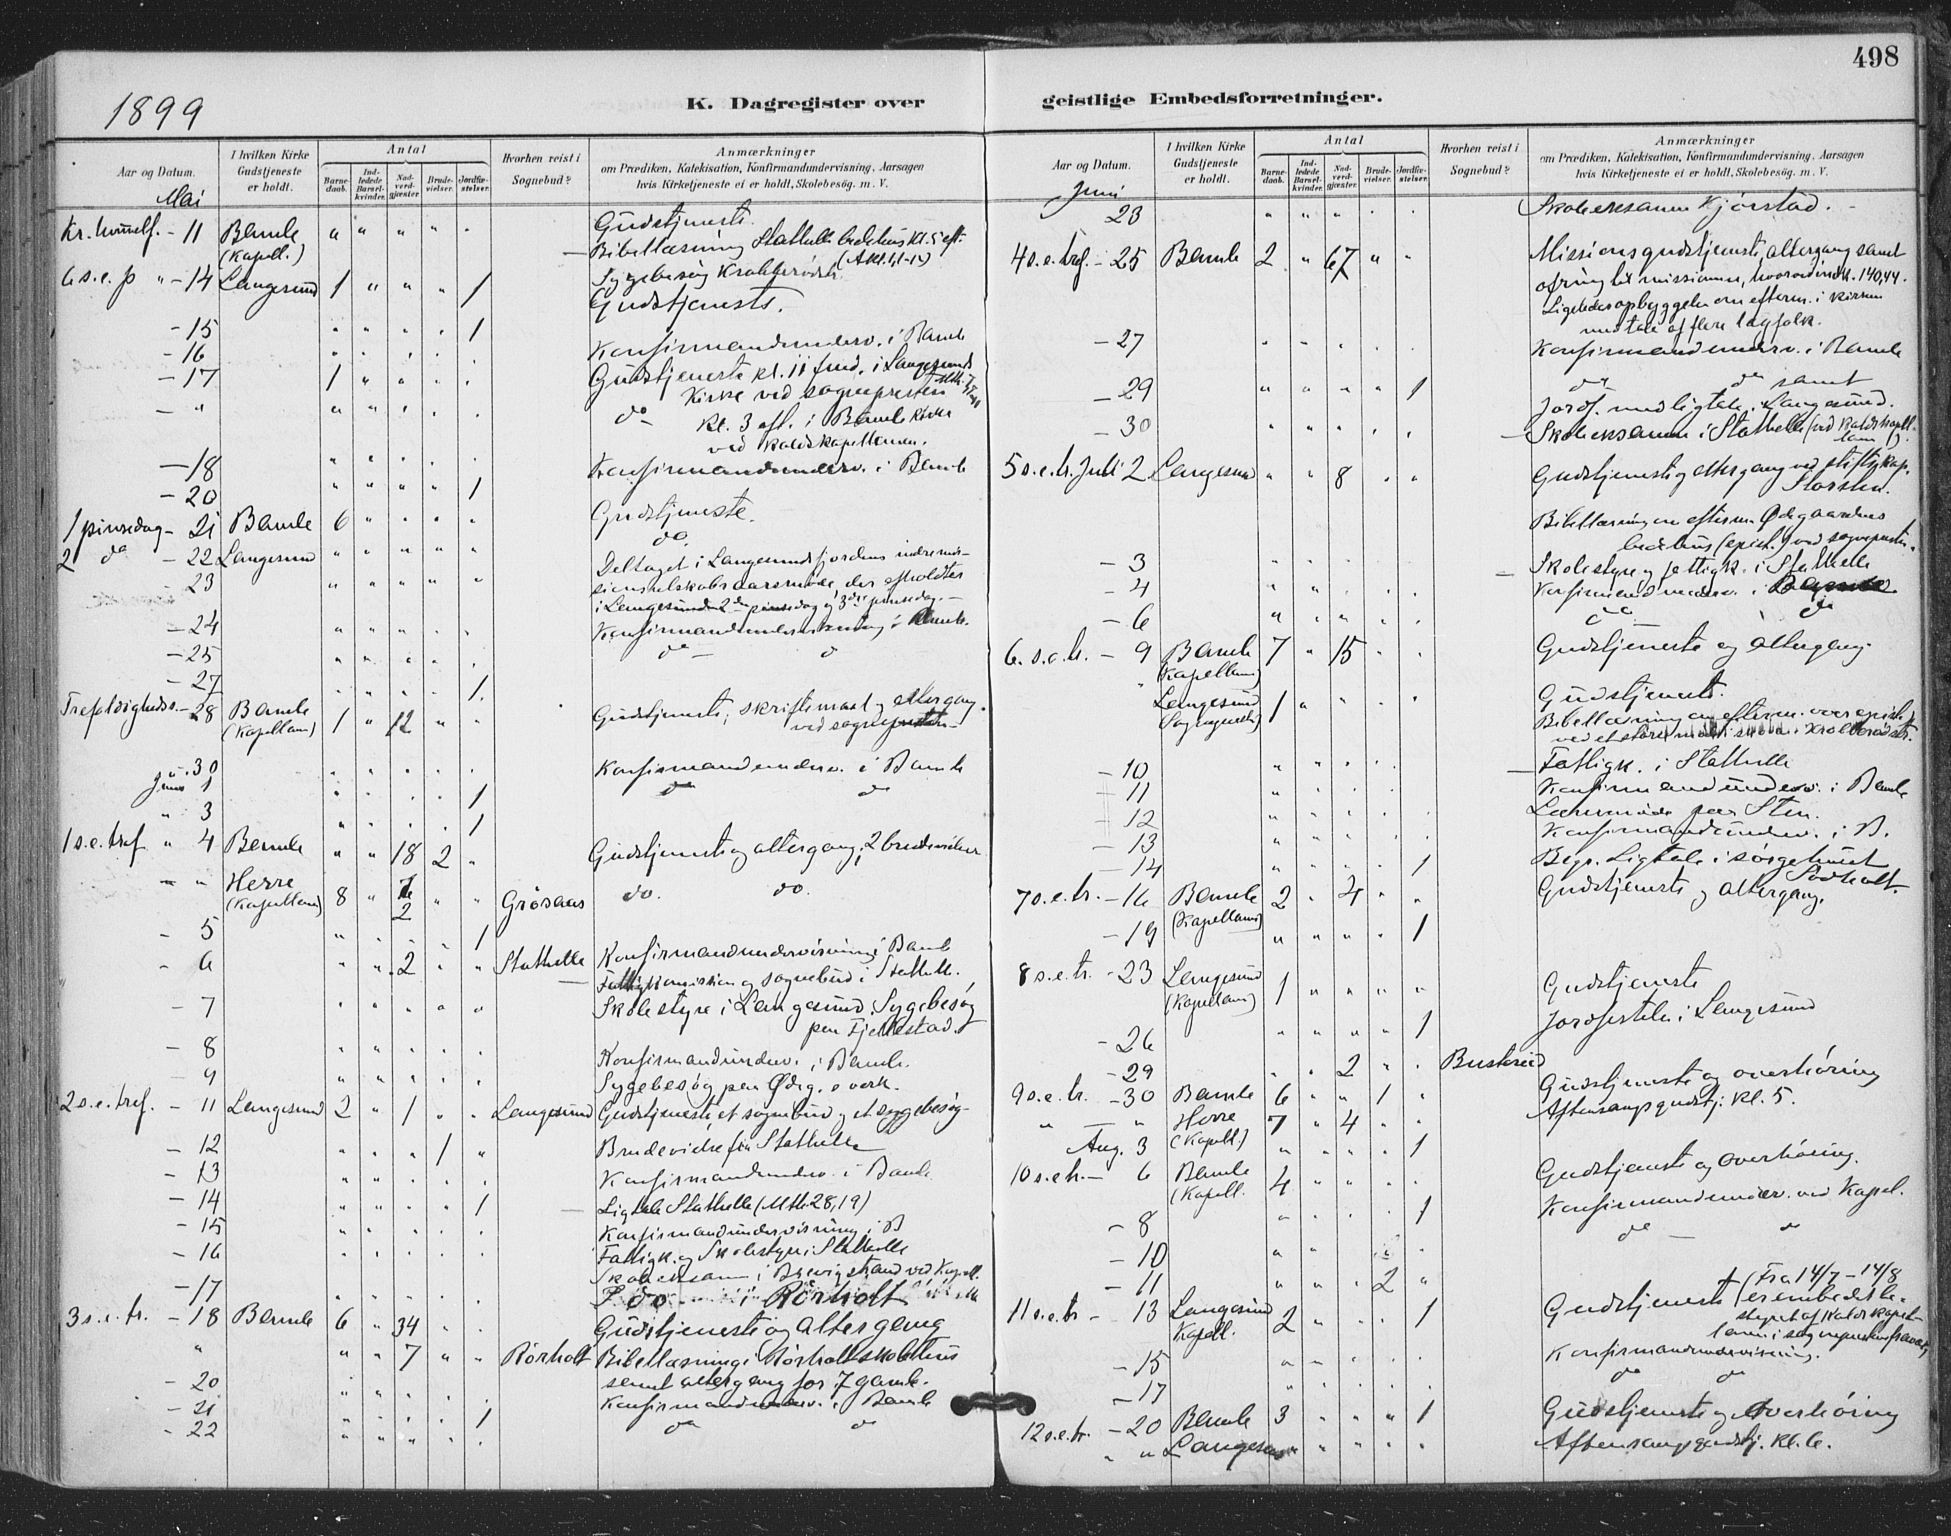 498
1899
K. Dagregister over geistlige Embedsforretninger.
Aar og Datum.
I hvilken Kirke Gudstjeneste er holdt.
Antal
Barnedaab.
Indledede Barselkvinder.
Nadverdgjæster.
Brudevielser.
Jordfæstelser.
Hvorhen reist i Sognebud?
Anmærkninger
om Prædiken, Katekisation, Konfirmandundervisning, Aarsagen
hvis Kirketjeneste ei er holdt, Skolebesøg. m. V.
Mai
Kr. himmelf. - 11 Bamle (Kapell.) " " " " " Gudstjeneste.
Bibellæsning Stathelle bedehus kl. 5 eft.
6 s. e. p " - 14 Langesund 1 " " " 1 Sygebesøg
Gudstjeneste.
- 15 " " " " 1 Konfirmandunderv. i Bamle
- 16
- 17 1 " " " " Gudstjeneste kl. 11 form. i Langesunds
Kirke ved sognepresten
- " do kl. 3 eft. i Bamle Kirke
ved kaldskapellanen.
- 18 Konfirmandunderv. i Bamle
- 20 " " " " 1
1 pinsedag - 21 Bamle 6 " " " " Gudstjeneste.
2 do - 22 Langesund " " " " " do.
- 23 Deltaget i Langesundsfjordens indremis-
sionsselskabs aarsmøde, der afholdtes
i Langesund 2den pinsedag og 3die pinsedag.
- 24 Konfirmandundervisning i Bamle.
- 25 do
- 27 1
Trefoldigheds. - 28 Bamle (Kapellan) 1 " 12 " " Gudstjeneste, skriftemaal og altergang
ved sognepresten
- 30 Konfirmandunderv. i Bamle
Juni 1 1 do do
" 3 1
1 s. e. tref " 4 Bamle " " 18 2 " Gudstjeneste og altergang, 2 brudevielser
" " Herre (Kapellan) 8 " 2 " " Grøsaas do. do.
- 5 1
- 6 " " 2 " " Stathelle Konfirmandundervisning i Bamle
Fattigkomission og sognebud i Stathelle.
- 7 Skolestyre i Langesund. Sygebesøg
paa Fjellestad
- 8 Konfirmandunderv. i Bamle.
- 9 Sygebesøg paa Ødeg. verk.
2 s. e. tref. - 11 Langesund 2 " 1 " " Langesund Gudstjeneste, et sognebud og et sygebesøg
- 12 " " " 1 " Brudevielse fra Stathelle
- 13 Konfirmandunderv. i Bamle
- 14 " " " " 1 Ligtale Stathelle (Mth. 28, 19)
- 15 Konfirmandundervisning i B
- 16 Fattigk. og Skolestyre i Stathelle
Skoleeksam. i Brevigstrand ved Kapell.
- 17 do i Rörholt
3 s. e. tr. - 18 Bamle 6 " 34 " " Gudstjeneste og altergang
" " " 7 " " Rörholt Bibellæsning i Rörholt skolehus
samt altergang for 7 gamle.
- 20
- 21 1 Konfirmandunderv. i Bamle
- 22 do do
Aar og Datum.
I hvilken Kirke Gudstjeneste er holdt.
Antal
Barnedaab.
Indledede Barselkvinder.
Nadverdgjæster.
Brudevielser.
Jordfæstelser.
Hvorhen reist i Sognebud?
Anmærkninger
om Prædiken, Katekisation, Konfirmandundervisning, Aarsagen
hvis Kirketjeneste ei er holdt, Skolebesøg. m. V.
Juni
23 Skoleeksamen Kjørstad.
4 s. e. tref. - 25 Bamle 2 " 67 " " Missionsgudstjeneste, altergang samt
ofring til missionen, hvorved indk. 140,44.
Ligeledes opbyggelse om efterm. i kirken
med tale af flere lægfolk.
- 27 Konfirmandunderv. i Bamle
- 29 " " " " 1 do do samt
Jordf. med ligtale. Langesund.
- 30 Skoleeksamen i Stathelle (ved kaldskapellan)
5 s. e. tr. Juli 2 Langesund " " 8 " " Gudstjeneste og altergang ved stiftskap.
Storsten.
Bibellæsning om efterm. Ødegaardens
bedehus ved sognepresten.
- 3 Skolestyre og fattigk. i Stathelle
- 4 Konfirmandunderv. i Bamle
- 6 do do
6. s. e. tr. - 9 Bamle (Kapellan) 7 " 15 " " Gudstjeneste og altergang
Langesund Sognepresten) 1 " " " " Gudstjeneste.
Bibellæsning om efterm.
- 10 Fattigk. i Stathelle
- 11 Konfirmandunderv. i Bamle
- 12 Lærermøde paa Sten.
- 13 Konfirmandunderv. i B.
- 14 1 Begr. Ligtale i sørgehuset
7 s. e. tr. - 16 Bamle (Kapellan) 2 " 4 " " Gudstjeneste og altergang.
- 19 1
8 s. e. tr. - 23 Langesund (Kapellan) 1 " " " " Gudstjeneste
- 26 1 Jordfestelse i Langesund
- 29 2
9 s. e. tr. - 30 Bamle 6 " " 1 " Gudstjeneste og overhøring
" " Herre (Kapell.) 7 " 4 " " Aftensangsgudstj. kl. 5.
Aug. 3 1
10 s. e. tr. - 6 Bamle (Kapell. 4 " " " " Gudstjeneste og overhøring.
- 8 1 Konfirmandunderv. ved Kapel.
- 10 do
- 11 2
11 s. e. tr - 13 Langesund Kapell. 2 " " " 1 Gudstjeneste † (Fra 14/7 - 14/8
er embedet be-
styret af kaldskapel-
lanen i sognepresten fravær
- 15 Konfirmandundervisning.
- 17 do do
12 s. e. tr. - 20 Bamle 3 " " " 1 Gudstjeneste og overhøring
" " Langesund Aftensangsgudstj. kl. 6.